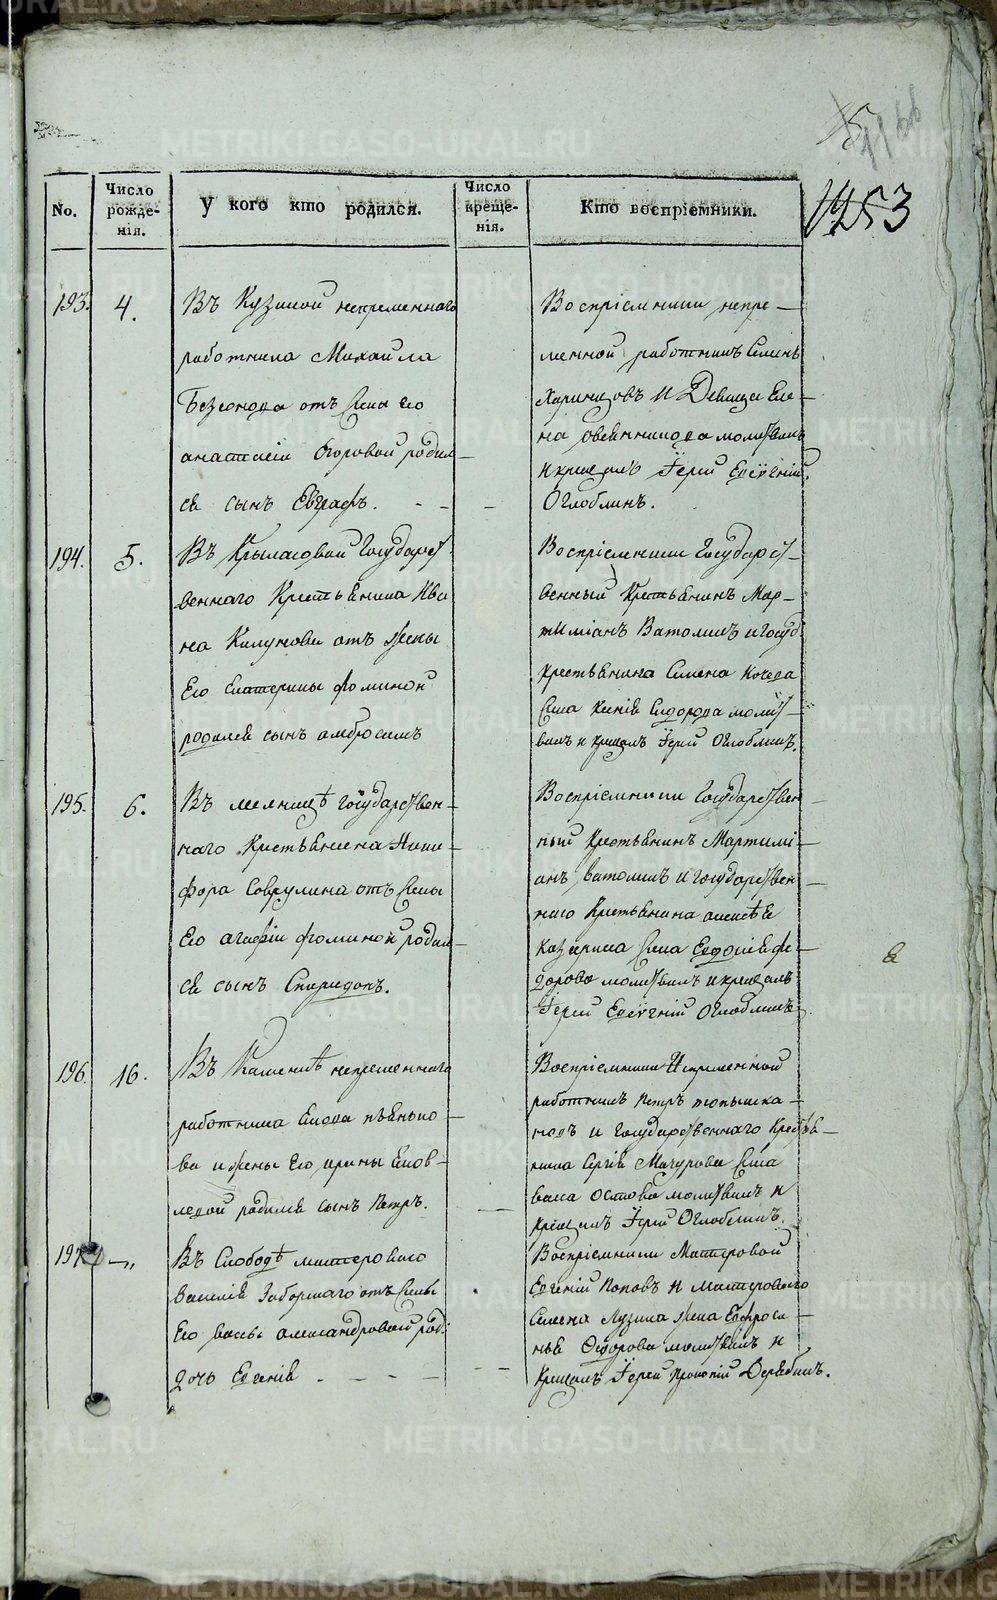 1453
No.
Число рожденія.
У кого кто родился.
Число крещенія.
Кто воспріемники.
193.
4.
Въ Кузиной непременнаго
работника Михаила
Безсонова отъ жены его
анастасіи Егоровой родил-
ся сынъ Евграфъ.
Воспріемники непре-
менной работникъ Семенъ
и Девица Еле-
на овсянникова молитвилъ
и крещалъ Іерей Евгеній
Оглоблинъ.
194.
5.
Въ Крыласовой Государст-
веннаго Крестьянина Ива
на Килунова отъ жены
его Екатерины фоминой
родился сынъ амвросимъ
Воспріемники Государст-
венный Крестьянинъ Мар-
тиміанъ Ватолинъ и госуд:
крестьянина Семена Кочева
жена Ксенія Сидорова молит-
вилъ и крещалъ Іерей Оглоблинъ.
195.
6.
Въ мелнице государствен-
наго Крестьянина Ники-
фора Соврулина отъ жены
его агафіи фоминой родил-
ся сынъ Спиридонъ.
Воспріемники Государствен-
ный Крестьянинъ Мартимі-
анъ Ватолинъ и Государствен-
наго Крестьянина алексея
жена Евдокія фе-
дорова молитвилъ и крещалъ
Іерей Евгеній Оглоблинъ
196.
16.
Въ Каменке непременнаго
работника Якова пьянко-
ва и жены его ирины Яков-
левой родился сынъ Петръ.
Воспріемники Непременной
работникъ Петръ топышка-
новъ и государственнаго крестья-
нина Сергея Мачурова жена
молитвилъ и
крещалъ Іерей Оглоблинъ.
197
Въ Слободе мастероваго
Василія Заборскаго отъ жены
его вассы александровой род:
дочь Евгенія
Воспріемники Мастеровой
Евгеній Поповъ и мастероваго
Семена Лузина жена Ефроси-
нья Федорова молитвилъ и
крещалъ Іерей Прокопій Дерябинъ.
METRIKI.GASO-URAL.RU